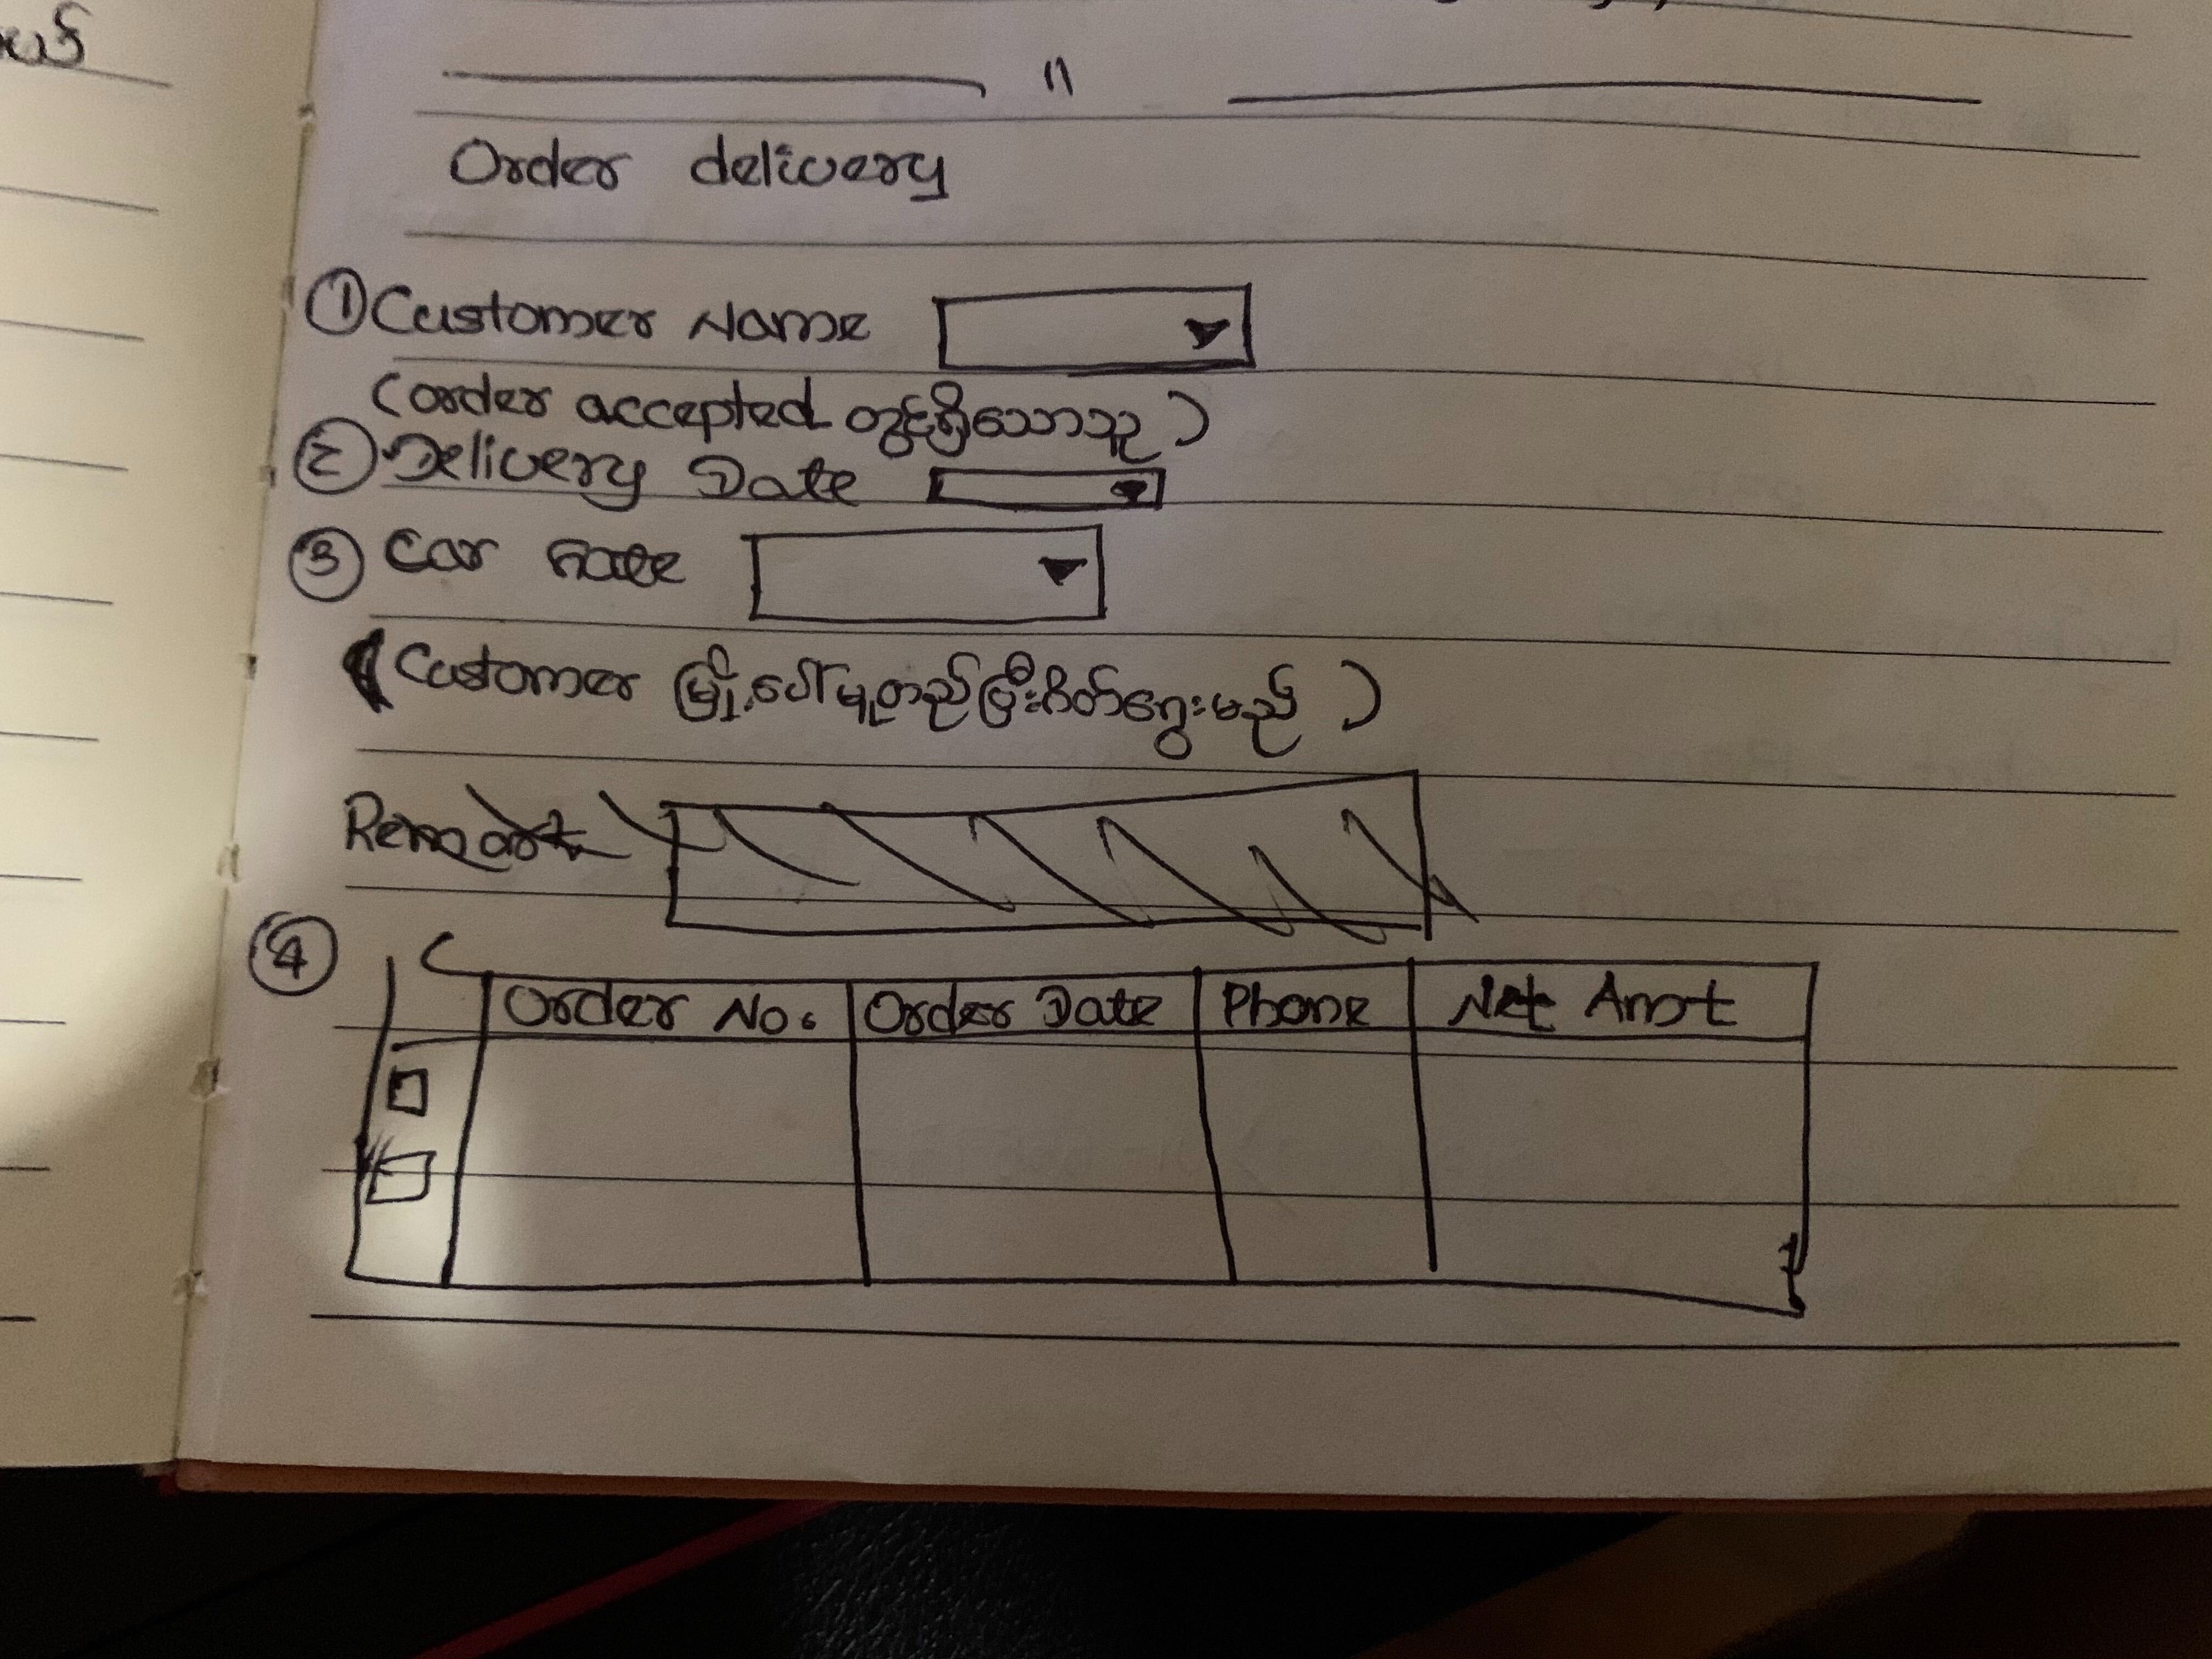 Order delivery
① Customer Name
(order accepted တွင်ရှိသောသူ )
② Delivery Date
③ Car Gate
(Customer မြို့ပေါ်မူတည်ပြီးဂိတ်ရွေးမည် )
Remark
④
Order No. Order Date Phone Net Amt